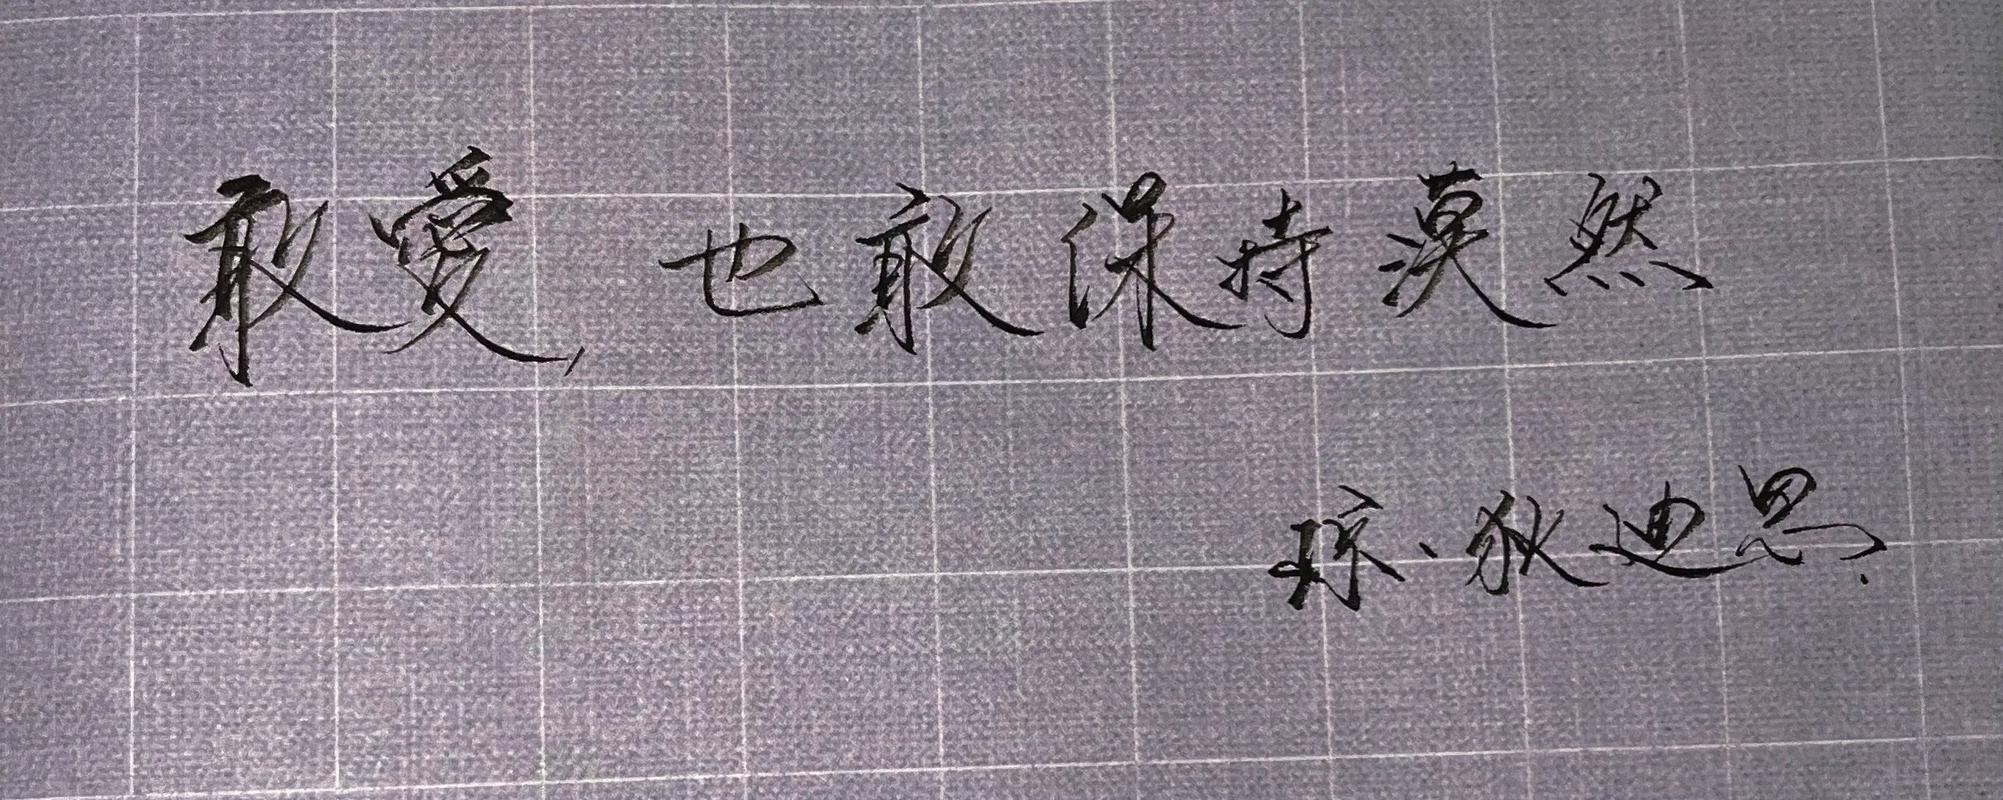 敢愛,也敢保持漠然
琼·狄迪恩.